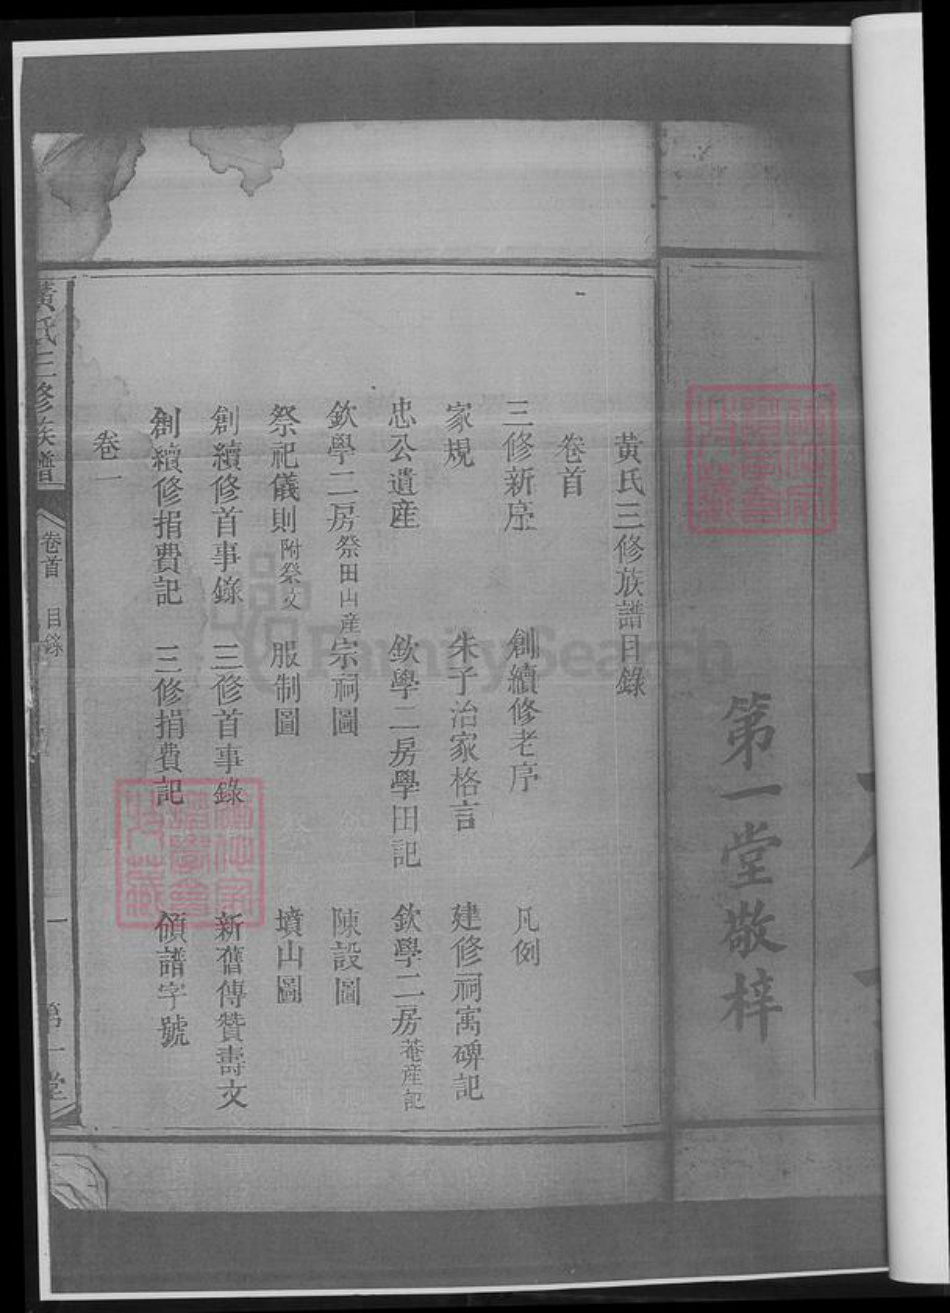 第一堂敬梓
黃氏三修族譜目錄
卷首
三修新序 創續修老序 凡例
家規 朱子治家格言 建修祠寓碑記
忠公遺産 欽學二房學田記 欽學二房菴産記
欽學二房祭田山産宗祠圖 陳設圖
祭祀儀則附祭文 服制圖 墳山圖
創續修首事錄 三修首事錄 新舊傳贊壽文
創續修捐費記 三修捐費記 領譜字號
卷一
黃氏三修族譜 卷首 目錄 一 第一堂
FamilySearch